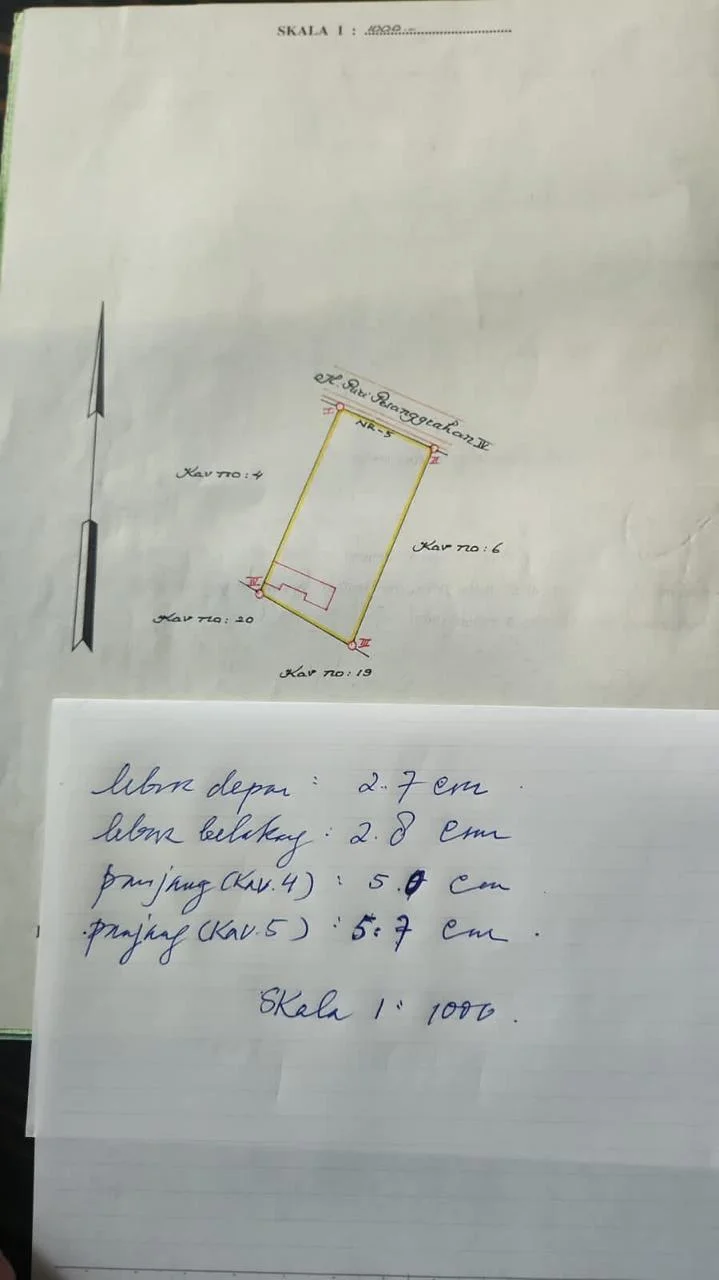 SKALA 1 : 1000
Jl. Puri Pesanggrahan IV
NR-5
I
II
Kav no: 4
Kav no: 6
IV
Kav no: 20
III
Kav no: 19
lebar depan : 2.7 cm
lebar belakang : 2.8 cm
panjang (Kav. 4) : 5.0 cm
panjang (Kav. 5) : 5.7 cm.
Skala 1 : 1000.